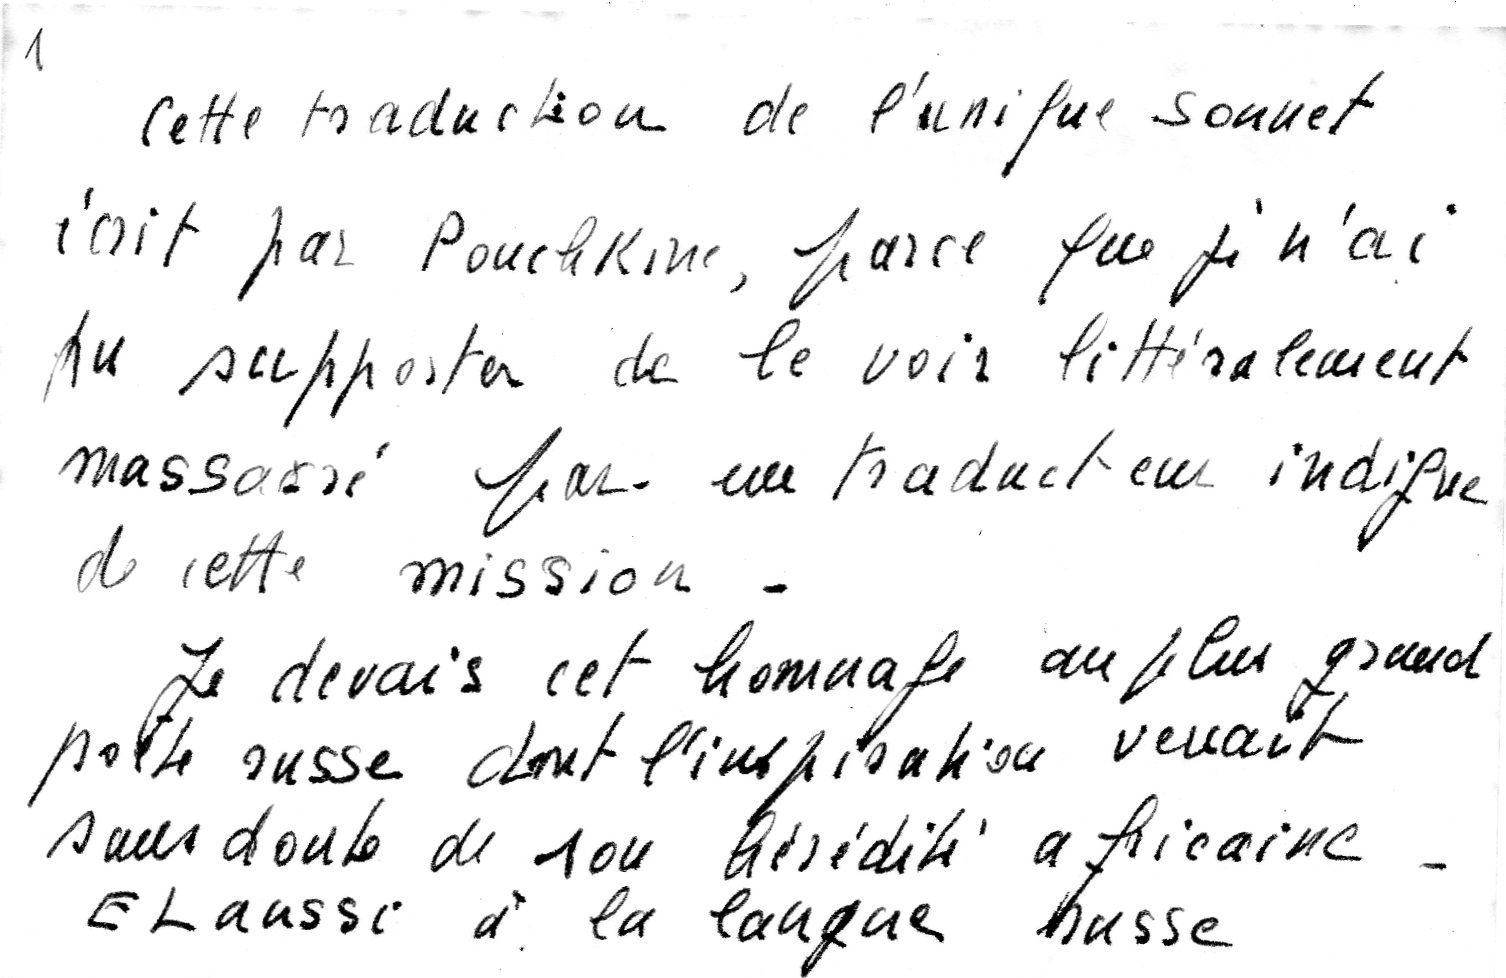 1
Cette traduction de l'unique sonnet
écrit par Pouchkine, parce que je n'ai
pu supporter de le voir littéralement
massacré par un traducteur indigne
de cette mission -
Je devais cet hommage au plus grand
poète russe dont l'inspiration venait
sans doute de son hérédité africaine -
Et aussi à la langue russe